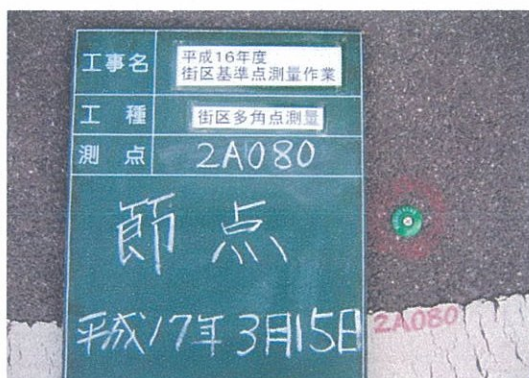 工事名 平成16年度
街区基準点測量作業
工種 街区多角点測量
測点 2A080
節点
平成17年3月15日
2A080